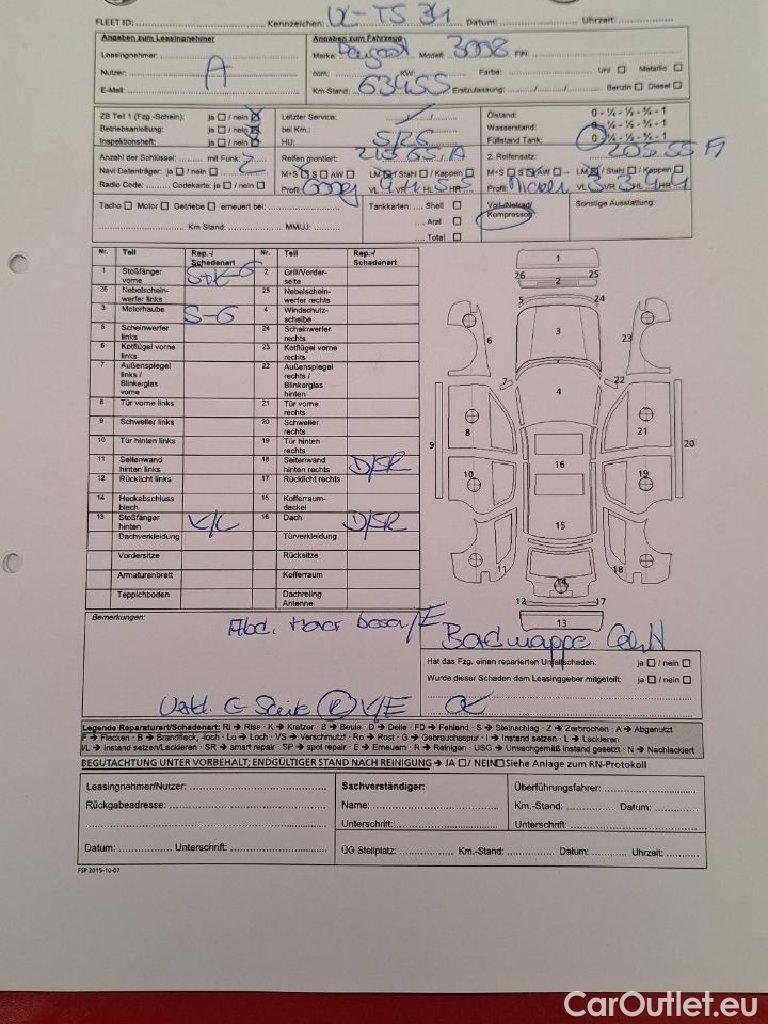 FLEET ID: Kennzeichen: Datum: Uhrzeit:
Angaben zum Leasingnehmer Angaben zum Fahrzeug
Leasingnehmer: Marke: Peugeot Modell: 3008 FIN:
Nutzer: A ccm: KW Farbe: Uni Metallic
E-Mail: Km-Stand: 63455 Erstzulassung: Benzin Diesel
ZB Teil 1 (Fzg.-Schein): ja / nein Letzter Service: Ölstand: 0 - ¼ - ½ - ¾ - 1
Betriebsanleitung: ja / nein bei Km.: Wasserstand: 0 - ¼ - ½ - ¾ - 1
Inspektionsheft: ja / nein HU: Füllstand Tank: 0 - ¼ - ½ - ¾ - 1
Anzahl der Schlüssel: mit Funk: 2 Reifen montiert: 2. Reifensatz: 205 55
Navi Datenträger: ja / nein M+S S AW LM / Stahl / Kappen M+S S AW → LM / Stahl / Kappen
Radio Code: Codekarte: ja / nein Profil VL VR HL HR Profil VL 3 VR 3 HL 4 HR 4
Tacho Motor Getriebe erneuert bei: Tankkarten: Shell Voll-/Notrad/ Sonstige Ausstattung:
Aral Kompressor
Km Stand: MM/JJ: Total
Nr. Teil Rep.-/Schadenart Nr. Teil Rep.-/Schadenart
1 Stoßfänger vorne 2 Grill/Vorderseite
26 Nebelscheinwerfer links 25 Nebelscheinwerfer rechts
3 Motorhaube S-G 4 Windschutzscheibe
5 Scheinwerfer links 24 Scheinwerfer rechts
6 Kotflügel vorne links 23 Kotflügel vorne rechts
7 Außenspiegel links / Blinkerglas vorne 22 Außenspiegel rechts / Blinkerglas hinten
8 Tür vorne links 21 Tür vorne rechts
9 Schweller links 20 Schweller rechts
10 Tür hinten links 19 Tür hinten rechts
11 Seitenwand hinten links 18 Seitenwand hinten rechts D/SR
12 Rücklicht links 17 Rücklicht rechts
14 Heckabschlussblech 15 Kofferraumdeckel
13 Stoßfänger hinten K/L 16 Dach D/SR
Dachverkleidung Türverkleidung
Vordersitze Rücksitze
Armaturenbrett Kofferraum
Teppichboden Dachreling Antenne
1
26 25
2
5 24
3
6 23
7 22
4
8 21
9 20
16
10 19
15
11 18
14
12 17
13
Bemerkungen:
Bordmappe
Hat das Fzg. einen reparierten Unfallschaden: ja / nein
Wurde dieser Schaden dem Leasinggeber mitgeteilt: ja / nein
Legende Reparaturart/Schadenart: RI → Riss · K → Kratzer · B → Beule · D → Delle · FD → Fehlend · S → Steinschlag · Z → Zerbrochen · A → Abgenutzt
F → Flecken · B → Brandfleck, -loch · Lo → Loch · VS → Verschmutzt · Ro → Rost · G → Gebrauchsspur · I → Instand setzen · L → Lackieren
I/L → Instand setzen/Lackieren · SR → smart repair · SP → spot repair · E → Erneuern · R → Reinigen · USG → Unsachgemäß instand gesetzt · N → Nachlackiert
BEGUTACHTUNG UNTER VORBEHALT; ENDGÜLTIGER STAND NACH REINIGUNG → JA / NEIN Siehe Anlage zum RN-Protokoll
Leasingnehmer/Nutzer: Sachverständiger: Überführungsfahrer:
Rückgabeadresse: Name: Km.-Stand: Datum:
Unterschrift: Unterschrift:
Datum: Unterschrift: ÜG Stellplatz: Km.-Stand: Datum: Uhrzeit:
FSP 2015-10-07
CarOutlet.eu